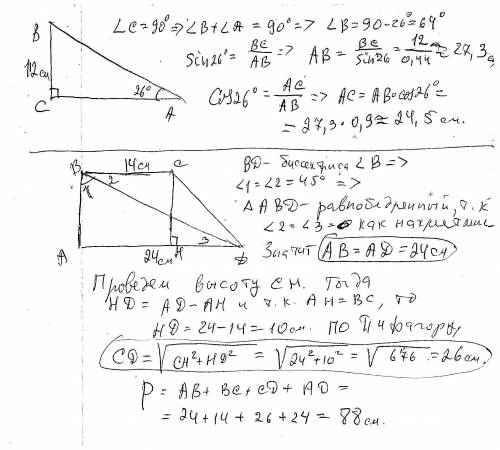 B
∠C=90° => ∠B+∠A = 90° => ∠B=90-26°=64°
sin26° = BC/AB => AB = BC/sin26 = 12/0,44 ≈ 27,3
12см
26°
C
A
Cos26° = AC/AB => AC = AB·cos26° =
= 27,3·0,9 ≈ 24,5 см.
B 14см C
1 2
BD- биссектриса ∠B =>
∠1=∠2=45° =>
△ABD- равнобедренный, т.к
∠2=∠3= как накрест
A 24см H 3 D
Значит AB=AD=24см
Проведем высоту CH. Тогда
HD= AD-AH и т.к. AH=BC, то
HD=24-14=10см. По Пифагору
CD=√CH²+HD² = √24²+10² = √676 = 26см.
P = AB+BC+CD+AD=
= 24+14+26+24 = 88см.